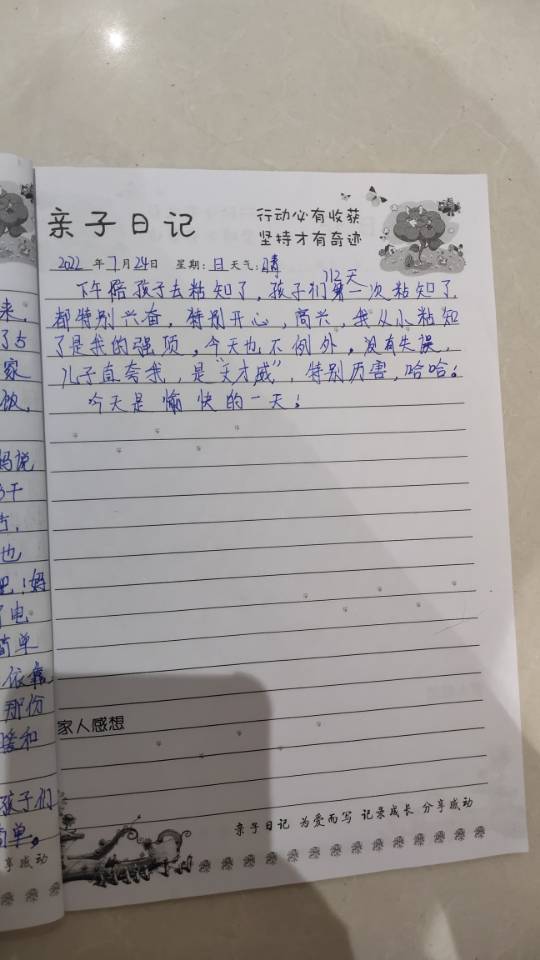 亲子日记
行动必有收获
坚持才有奇迹
2022年7月24日 星期:日 天气:晴
112天
下午陪孩子去粘知了,孩子们第一次粘知了,
都特别兴奋,特别开心,高兴,我从小粘知
了是我的强项,今天也不例外,没有失误,
儿子直夸我,是“天才威”,特别厉害,哈哈。
今天是愉快的一天!
家人感想
亲子日记 为爱而写 记录成长 分享感动
来,
了与
家
饭,
妈说
也
吧!妈
了电
简单
依靠
那份
暖和
孩子们
简单。
享感动